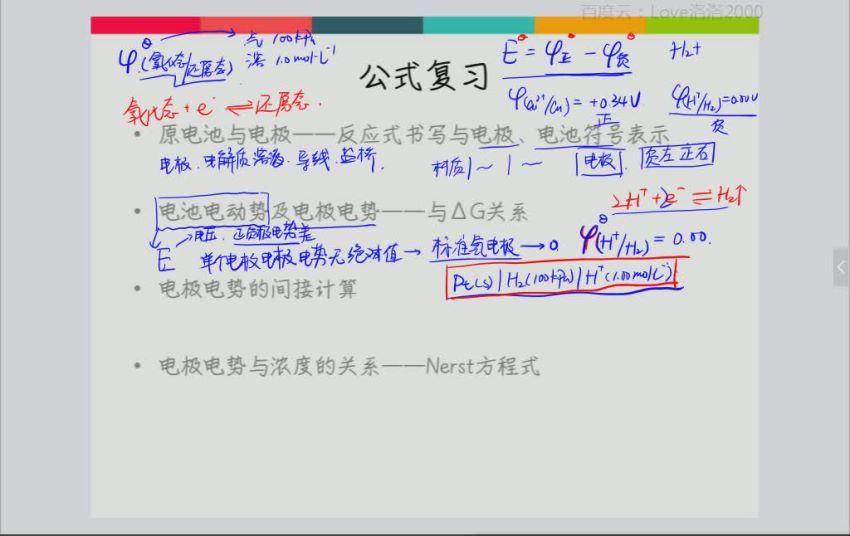 百度云：Love洛洛2000
φ⊖(氧化态/还原态)
气 100kPa
浓 1.0mol·L⁻¹
E⊖ = φ正⊖ − φ负⊖
H₂+
公式复习
氧化态 + e⁻ ⇌ 还原态.
φ(Cu²⁺/Cu) = +0.34V
正
φ(H⁺/H₂)=0.00V
负
• 原电池与电极——反应式书写与电极、电池符号表示
电极. 电解质溶液. 导线. 盐桥.
材质|~ | ~ 电极. 负左正右
2H⁺+2e⁻ ⇌ H₂↑
• 电池电动势及电极电势——与ΔG关系
电压. 正负极电势差
E 单个电极电极电势无绝对值 → 标准氢电极 → 0 φ⊖(H⁺/H₂) = 0.00.
Pt(s) | H₂(100kPa) | H⁺(1.00mol·L⁻¹)
• 电极电势的间接计算
• 电极电势与浓度的关系——Nerst方程式